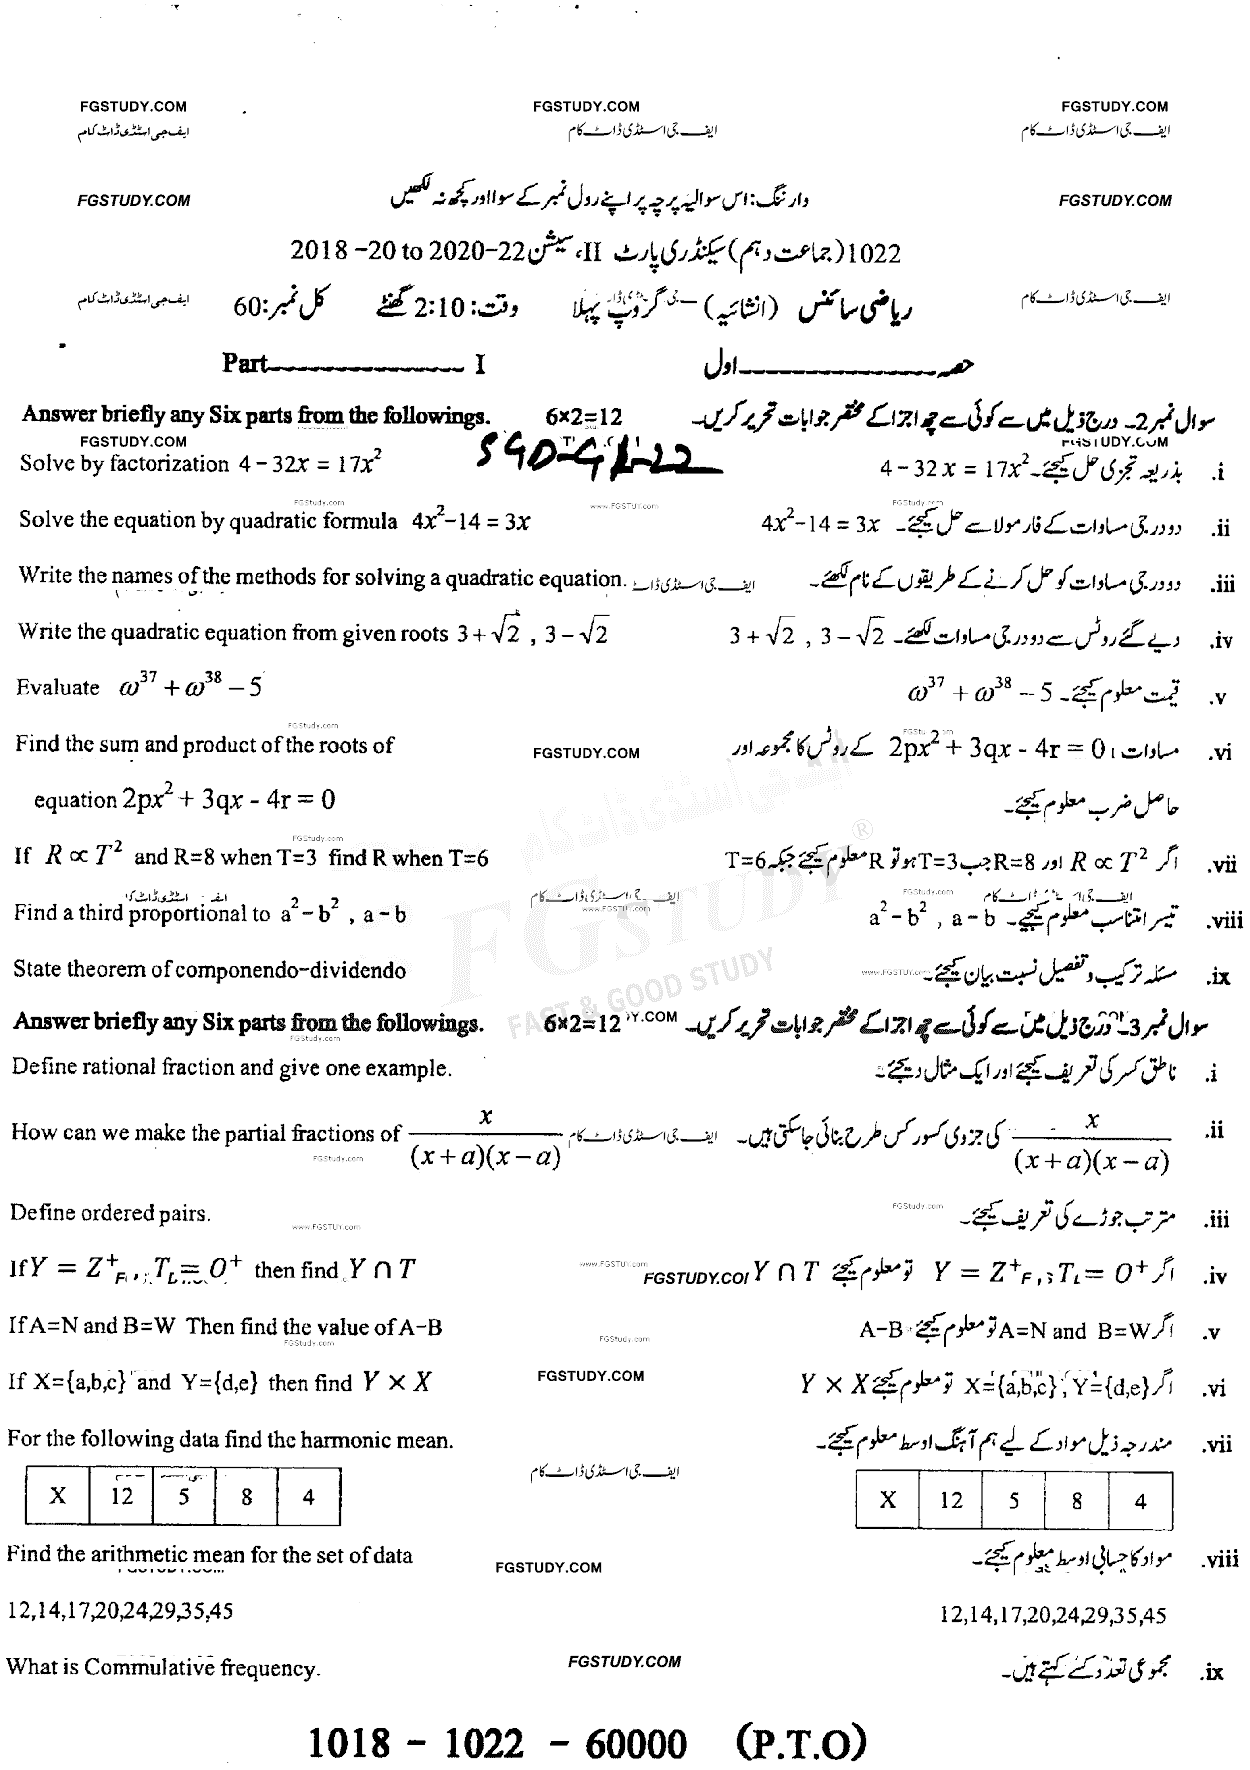 FGSTUDY.COM FGSTUDY.COM FGSTUDY.COM
ایف جی اسٹڈی ڈاٹ کام ایف جی اسٹڈی ڈاٹ کام ایف جی اسٹڈی ڈاٹ کام
FGSTUDY.COM وارننگ: اس سوالیہ پرچہ پر اپنے رول نمبر کے سوا اور کچھ نہ لکھیں FGSTUDY.COM
1022 (جماعت دہم) سیکنڈری پارٹ II، سیشن 2018 -20 to 2020-22
ریاضی سائنس (انشائیہ) گروپ پہلا وقت: 2:10 گھنٹے کل نمبر: 60
Part I حصہ اول
Answer briefly any Six parts from the followings. 6×2=12 سوال نمبر 2۔ درج ذیل میں سے کوئی سے چھ اجزا کے مختصر جوابات تحریر کریں۔
FGSTUDY.COM
Solve by factorization 4 – 32x = 17x² SGD-G1-22 4 – 32x = 17x² بذریعہ تجزی حل کیجئے۔ .i
Solve the equation by quadratic formula 4x²–14 = 3x 4x²–14 = 3x دو درجی مساوات کے فارمولا سے حل کیجئے۔ .ii
Write the names of the methods for solving a quadratic equation. ایف جی اسٹڈی ڈاٹ دو درجی مساوات کو حل کرنے کے طریقوں کے نام لکھئے۔ .iii
Write the quadratic equation from given roots 3+√2 , 3–√2 3+√2 , 3–√2 دیے گئے روٹس سے دو درجی مساوات لکھئے۔ .iv
Evaluate ω³⁷ + ω³⁸ – 5 ω³⁷ + ω³⁸ – 5 قیمت معلوم کیجئے۔ .v
Find the sum and product of the roots of FGSTUDY.COM مساوات 2px² + 3qx - 4r = 0 کے روٹس کا مجموعہ اور .vi
equation 2px² + 3qx - 4r = 0 حاصل ضرب معلوم کیجئے۔
If R ∝ T² and R=8 when T=3 find R when T=6 اگر R ∝ T² اور R=8 جب T=3 ہو تو R معلوم کیجئے جبکہ T=6 .vii
Find a third proportional to a²–b² , a–b a²–b² , a–b تیسرا متناسب معلوم کیجئے۔ .viii
State theorem of componendo-dividendo مسئلہ ترکیب و تفصیل نسبت بیان کیجئے۔ .ix
FGSTUDY
FAST & GOOD STUDY
Answer briefly any Six parts from the followings. 6×2=12 سوال نمبر 3۔ درج ذیل میں سے کوئی سے چھ اجزا کے مختصر جوابات تحریر کریں۔
Define rational fraction and give one example. ناطق کسر کی تعریف کیجئے اور ایک مثال دیجئے۔ .i
How can we make the partial fractions of x/((x+a)(x–a)) ایف جی اسٹڈی ڈاٹ کام x/((x+a)(x–a)) کی جزوی کسور کس طرح بنائی جا سکتی ہیں۔ .ii
Define ordered pairs. مرتب جوڑے کی تعریف کیجئے۔ .iii
If Y = Z⁺, T = O⁺ then find Y ∩ T اگر Y = Z⁺, T = O⁺ تو معلوم کیجئے Y ∩ T .iv
If A=N and B=W Then find the value of A–B اگر A=N and B=W تو معلوم کیجئے A–B .v
If X={a,b,c} and Y={d,e} then find Y × X FGSTUDY.COM اگر X={a,b,c}, Y={d,e} تو معلوم کیجئے Y × X .vi
For the following data find the harmonic mean. مندرجہ ذیل مواد کے لیے ہم آہنگ اوسط معلوم کیجئے۔ .vii
X 12 5 8 4 ایف جی اسٹڈی ڈاٹ کام X 12 5 8 4
Find the arithmetic mean for the set of data FGSTUDY.COM مواد کا حسابی اوسط معلوم کیجئے۔ .viii
12,14,17,20,24,29,35,45 12,14,17,20,24,29,35,45
What is Commulative frequency. FGSTUDY.COM مجموعی تعدد کسے کہتے ہیں۔ .ix
1018 - 1022 - 60000 (P.T.O)